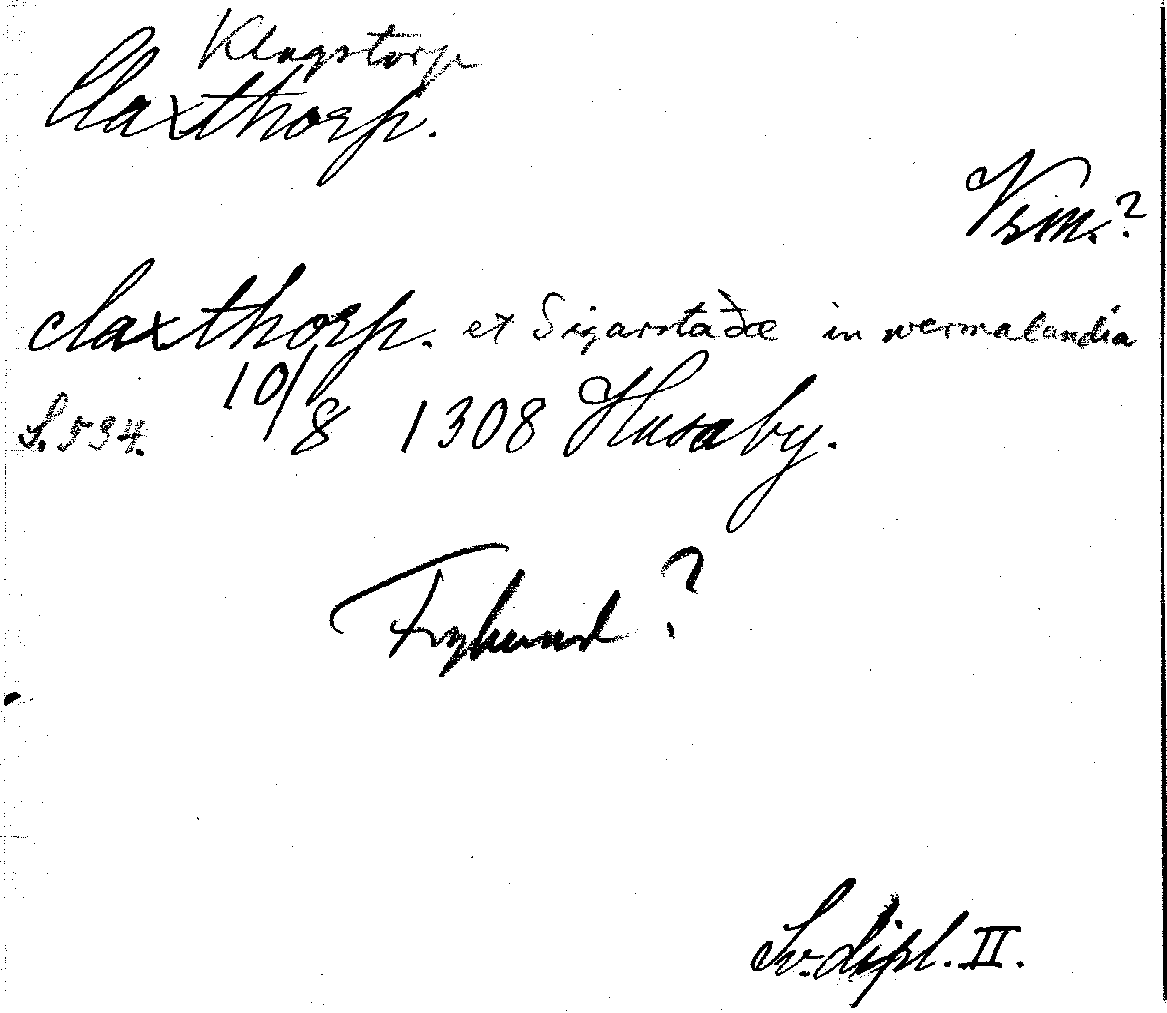 Klagstorp
Claxthorp.
Vrm.?
claxthorp. et Sigarstadæ in wermalandia
S. 534. 10/8 1308 Husaby.
Frykund ?
Sv. dipl. II.